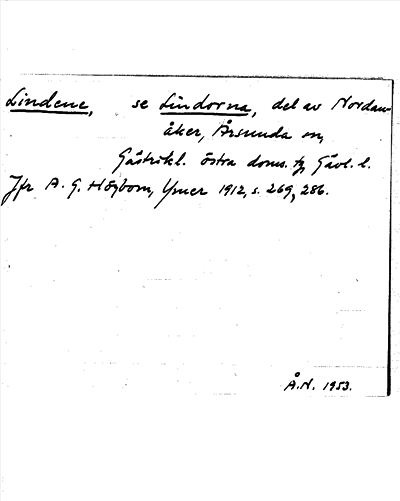 Lindene, se Lindorna, del av Nordan-
åker, Årsunda sn,
Gästrikl. östra doms. tg, Gävl. l.
Jfr A. G. Högbom, Ymer 1912, s. 269, 286.
Å.N. 1953.